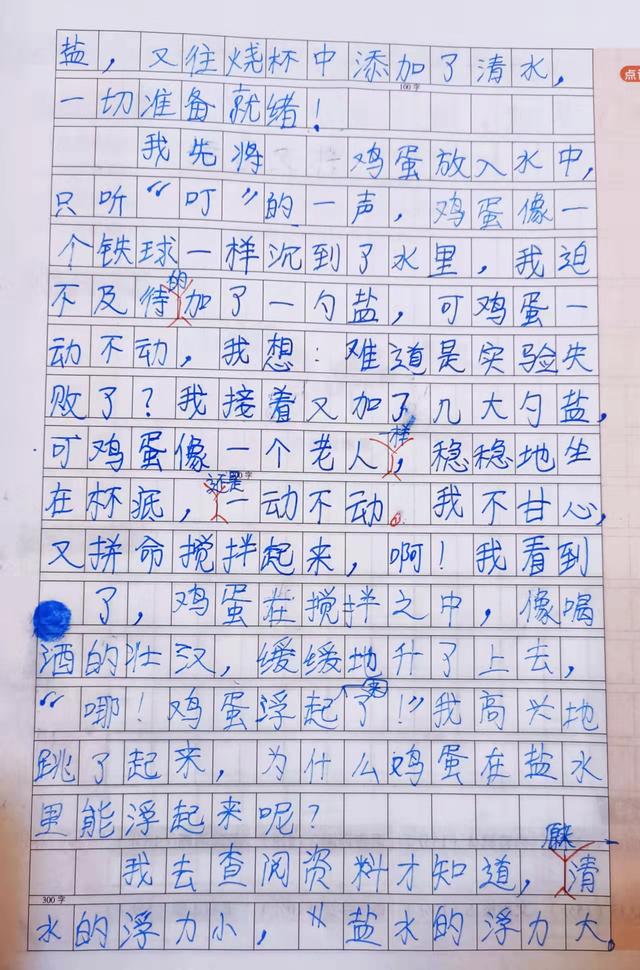 点评
盐，又往烧杯中添加了清水，
100字
一切准备就绪！
我先将鸡蛋放入水中，
只听“叮”的一声，鸡蛋像一
个铁球一样沉到了水里，我迫
不及待的加了一勺盐，可鸡蛋一
动不动，我想：难道是实验失
败了？我接着又加了几大勺盐，
可鸡蛋像一个老人一样，稳稳地坐
在杯底，还是一动不动。我不甘心，
又拼命搅拌起来，啊！我看到
了，鸡蛋在搅拌之中，像喝
酒的壮汉，缓缓地升了上去，
“哪！鸡蛋浮起来了！”我高兴地
跳了起来，为什么鸡蛋在盐水
里能浮起来呢？
我去查阅资料才知道，原来清
300字
水的浮力小，盐水的浮力大。